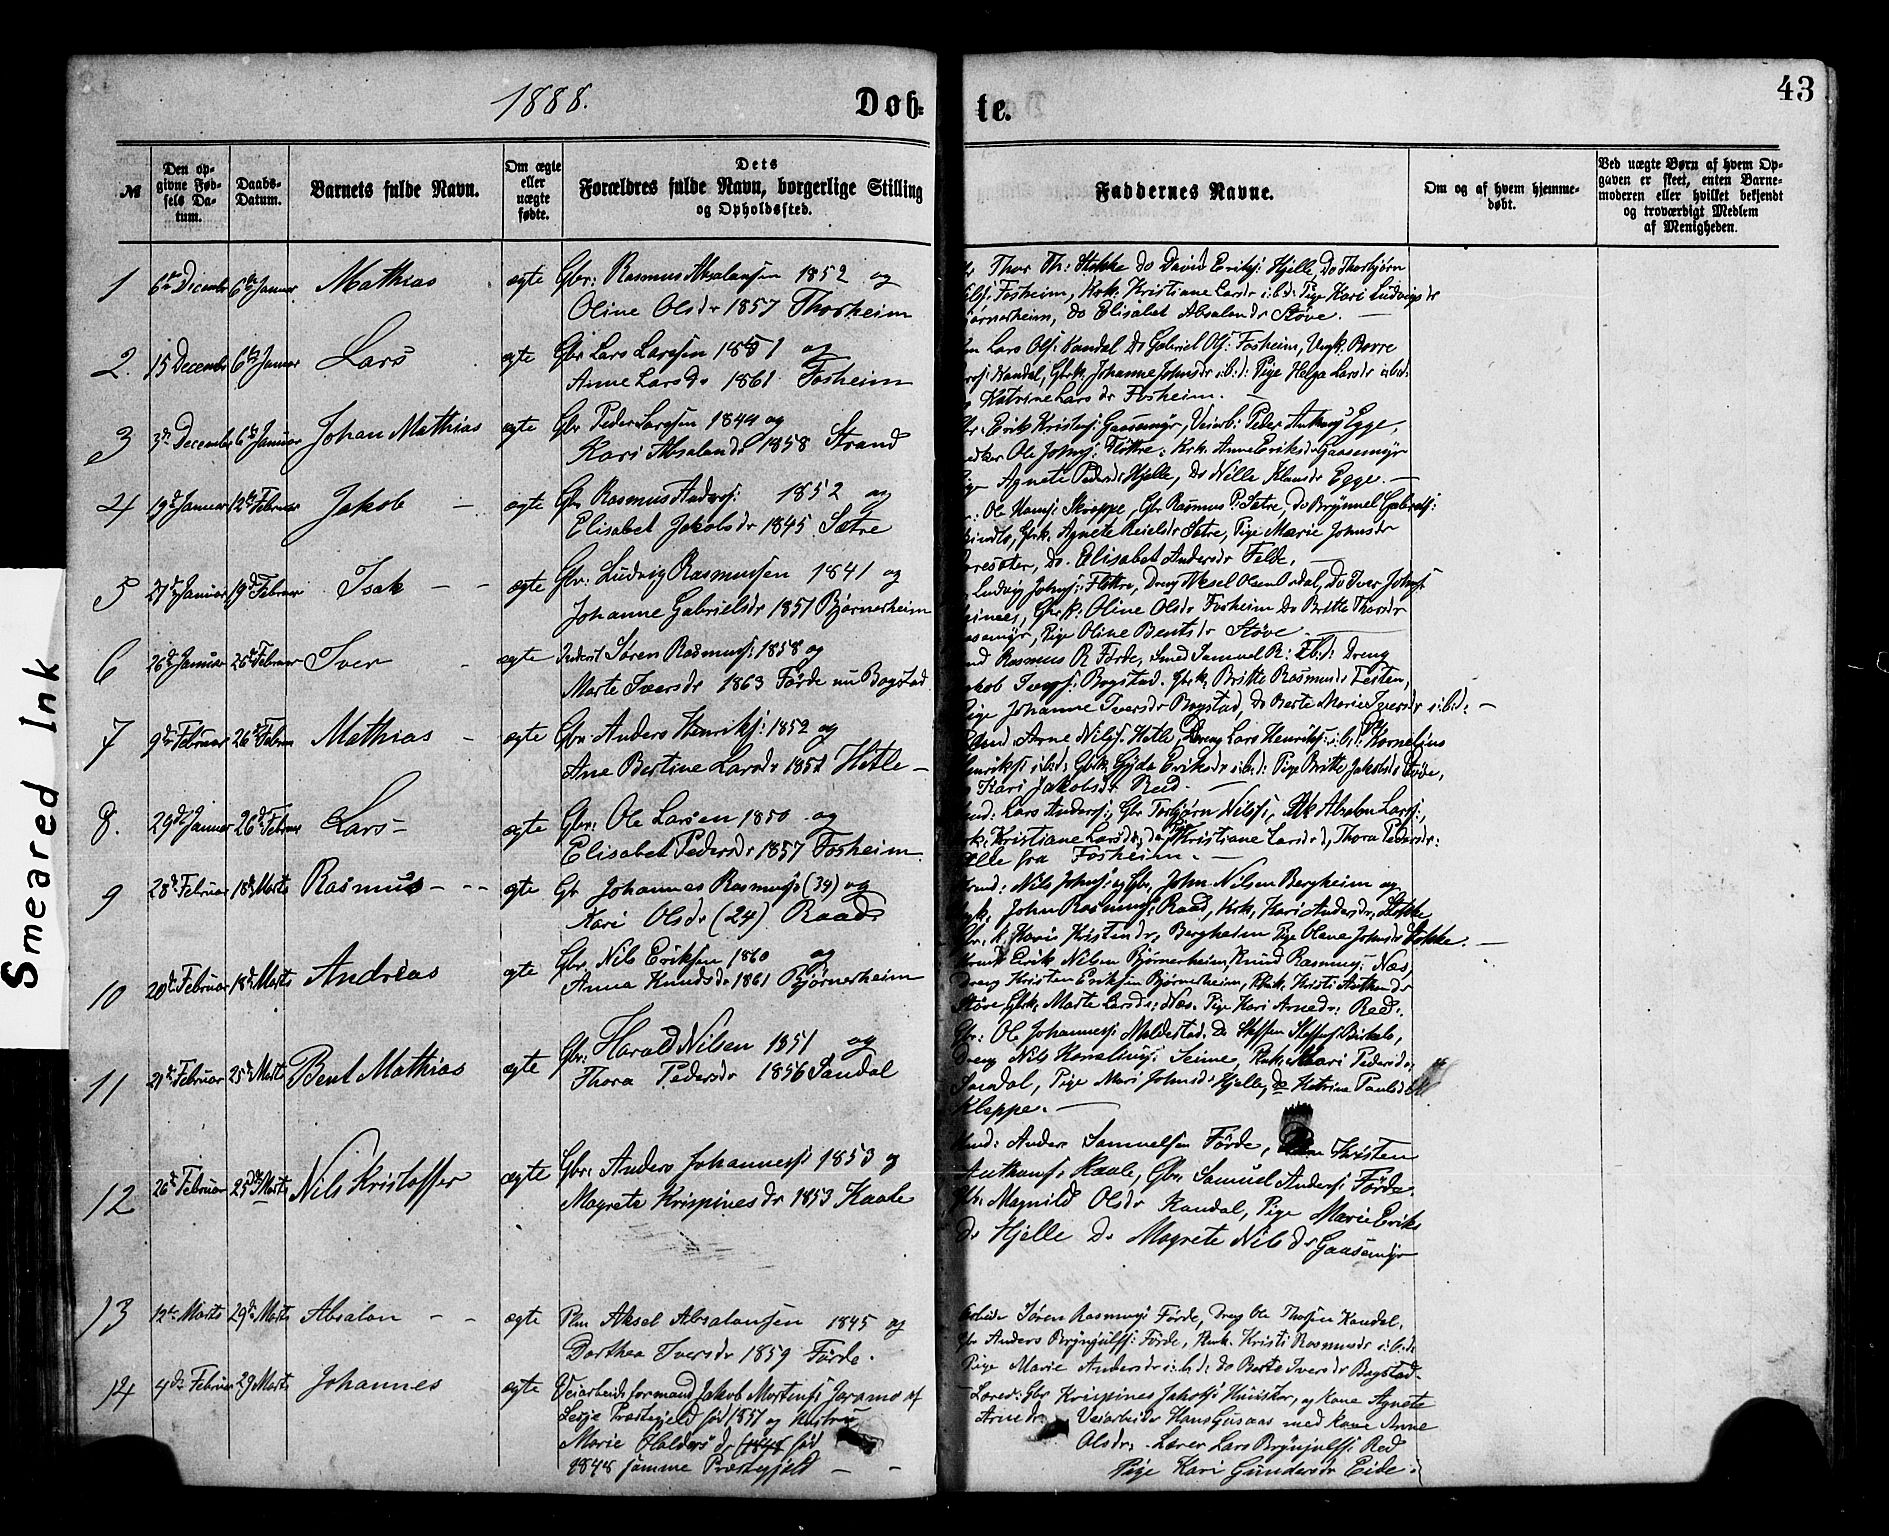 43
1888.
Døb-
te.
№
Den op-
givne Fød-
sels Da-
tum.
Daabs-
Datum.
Barnets fulde Navn.
Om ægte
eller
uægte
fødte.
Dets
Forældres fulde Navn, borgerlige Stilling
og Opholdssted.
Faddernes Navne.
Om og af hvem hjemme-
døbt.
Ved uægte Børn af hvem Op-
gaven er skeet, enten Barne-
moderen eller hvilket bekjendt
og troværdigt Medlem
af Menigheden.
1 6te December 6te Januar Mathias ægte Gbr: Rasmus Absalonsen 1852 og
Oline Olsdr 1857 Thorheim
Thor Th: Stokke do David Eriks: Hjelle, Do Thorbjørn
Fosheim, Krk: Kristiane Larsdr i.b.d: Pige Kari Ludvigsdr
Bjørnerheim, do Elisabet Absalonsdr Støve. —
2. 15 December 6te Januar Lars ægte Gbr Lars Larssen 1851 og
Anne Larsdr 1861 Fosheim
Lars Ols: Kandal Do Gabriel Ols: Fosheim, Ungk. Borre
Kandal, Gbrk. Johanne Johnsdr i:b:d: Pige Helga Larsdr i:b:d:
Katrine Larsdr Fosheim. —
3 3de December 6te Januar Johan Mathias ægte Gbr Peder Larssen 1844 og
Kari Absalonsdr 1858 Strand
Erik Kristens: Gaasemyr, Veiarb: Peder Anthons: Egge,
Ole Johns: Fløttre: Krk. Anne Eriksdr Gaasemyr
Agnete Pedersdr Hjelle, Do Nille Klausdr Egge. —
4 19de Januar 12te Februar Jakob — ægte Gbr Rasmus Anders: 1852 og
Elisabet Jakobsdr 1845 Sætre
Ole Hans: Skreppe, Gbr Rasmus P: Sætre, do Brynnel Gabriels:
Gbrk. Agnete Reielsdr Sætre, Pige Marie Johnsdr
do. Elisabet Andersdr Felde, —
5 27de Januar 19de Februar Isak — - ægte Gbr. Ludvig Rasmussen 1841 og
Johanne Gabrielsdr 1851 Bjørnerheim
Ludvig Johns: Fløttre, Dreng Aksel Olsen Ordal, do Iver Johns:
Gbrk: Oline Olsdr Fosheim do Britte Thorsdr
Gaasemyr, Pige Oline Bentsdr Støve.
6 26de Januar 26de Februar Iver - ægte Inderst Søren Rasmus: 1858 og
Marte Iversdr 1863 Førde nu Bogstad
Rasmus R Førde, Smed Samuel R: I:b:d: Dreng
Jakob Ivers: Bogstad. Gbrk. Britte Rasmusdr Festen,
Pige Johanne Iversdr Bogstad, do Berte Marie Iversdr i:b:d: —
7 9de Februar 26de Februar Mathias - ægte Gbr Anders Henriks: 1852 og
Ane Bertine Larsdr 1851 Hetle —
Arne Nils: Hetle, Dreng Lars Henriks: i:b:d: Kornelius
Henriks: i:b:d: Gbrk. Gjøda Eriksdr i:b:d: Pige Britte Jakobsdr Førde,
Kari Jakobsdr Reid. —
8. 29de Januar 26de Februar Lars - ægte Gbr: Ole Larsen 1850 og
Elisabet Pedersdr 1857 Fosheim
Lars Anders:, Gbr Torbjørn Nils:, Absalon Lars:,
Kristiane Larsdr, do Kristiane Larsdr, Thora Pedersdr:
Alle fra Fosheim. —
9 28de Februar 18de Marts Rasmus — - - ægte Gbr Johannes Rasmus: (34) og
Kari Olsdr (24) Raad
Nils Johns: og Gbr. John Nilsen Bergheim og
Ungk. John Rasmus: Raad, Krk, Kari Andersdr, Stokke
Gbr. k. Karie Kristensdr, Bergheim Pige Olane Johnsdr Stokke. —
10 20de Februar 18de Marts Andreas ægte Gbr. Nils Eriksen 1860 og
Anna Knudsdr 1861 Bjørnerheim
Erik Nilsen Bjørnerheim, Knud Rasmus: Næs,
Dreng Kristen Eriksen Bjørnerheim, Kristi Anthonsdr
Støve Gbrk. Marte Larsdr: Næs. Pige Kari Arnesdr: Red:.
11 21de Februar 25de Marts Bent Mathias ægte Gbr: Harald Nilsen 1851 og
Thora Pedersdr 1856 Sandal
Gbr: Ole Johannes: Moldestad. do Steffen Steffens: Birkelo,
Dreng Nils Kornelius: Seime, Kari Pedersdr,
Sandal, Pige Mari Johnsdr Hjelle, do Katrine Paulsdr
Kleppe. —
12 26de Februar 25de Marts Nils Kristoffer ægte Gbr: Anders Johannes: 1853 og
Magrete Krispinesdr 1853 Kaale
Anders Samuelsen Førde, Kristen
Anthons: Kaale, Gbr. Samuel Anders: Førde.
Magnild Olsdr Kandal, Pige Marie Eriks
dr Hjelle do Magrete Nilsdr Gaasemyr
13 12te Marts 29de Marts Absalon - - ægte Plm Aksel Absalonsen 1845 og
Dorthea Iversdr 1859 Førde.
Søren Rasmus: Førde, Dreng Ole Thorsen Kandal,
Gbr Anders Brynjulfs: Førde, Kristi Rasmusdr i:b:d:
Pige Marie Andersdr i:b:d: do Berte Iversdr Bogstad
14 4de Februar 29 Marts Johannes ægte Veiarbeidsformand Jakob Mortens: Joramo af
Lesje Præstegjeld fød 1857 og Hustru
Marie Haldorsdr (1848 fød
1848 samme Præstegjeld — -
Gbr Krispines Jakobs: og Kone Agnete
Arnesdr Veiarbeider Hans Gusaas med Kone Anne
Olsdr, Lærer Lars Brynjulfs: Red
Pige Kari Gundersdr Eide.
Smeared Ink